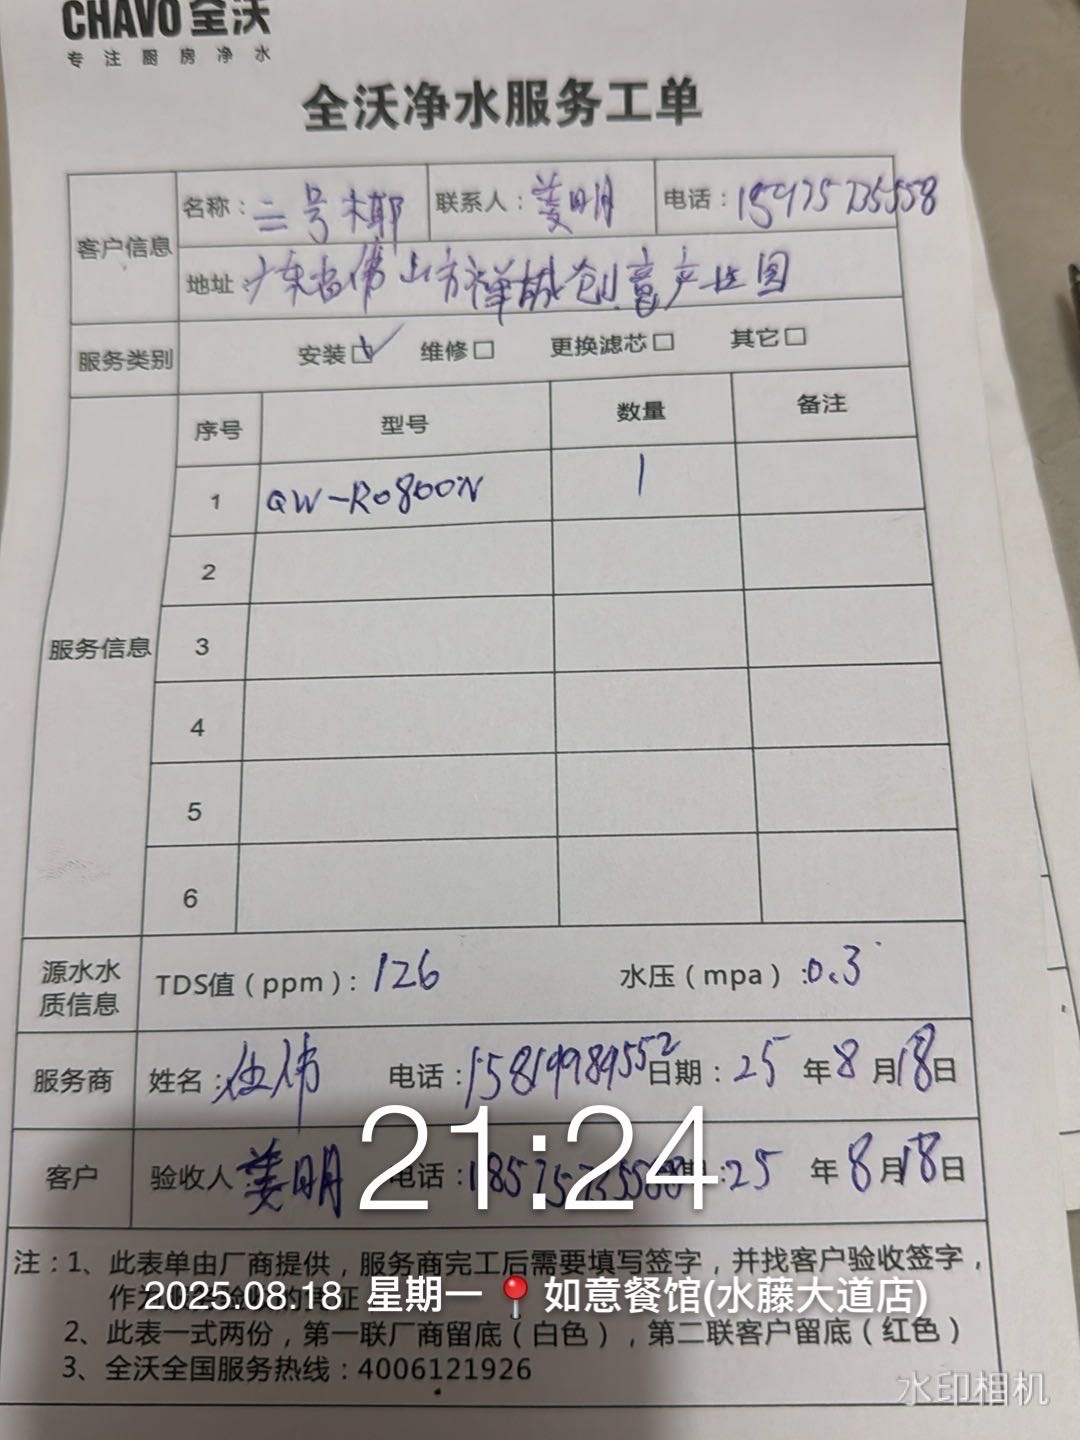 CHAVO 全沃
专注厨房净水
全沃净水服务工单
客户信息 名称：二号椰 联系人：姜明 电话：15975735558
地址：广东省佛山市禅城创意产业园
服务类别 安装☑ 维修□ 更换滤芯□ 其它□
服务信息 序号 型号 数量 备注
1 QW-RO800N 1
2
3
4
5
6
源水水质信息 TDS值（ppm）：126 水压（mpa）:0.3
服务商 姓名：伍伟 电话：15819989552 日期：25年8月18日
客户 验收人 姜明 电话： 日期：25年8月18日
21:24
注：1、此表单由厂商提供，服务商完工后需要填写签字，并找客户验收签字，
2025.08.18 星期一 如意餐馆(水藤大道店)
2、此表一式两份，第一联厂商留底（白色），第二联客户留底（红色）
3、全沃全国服务热线：4006121926
水印相机